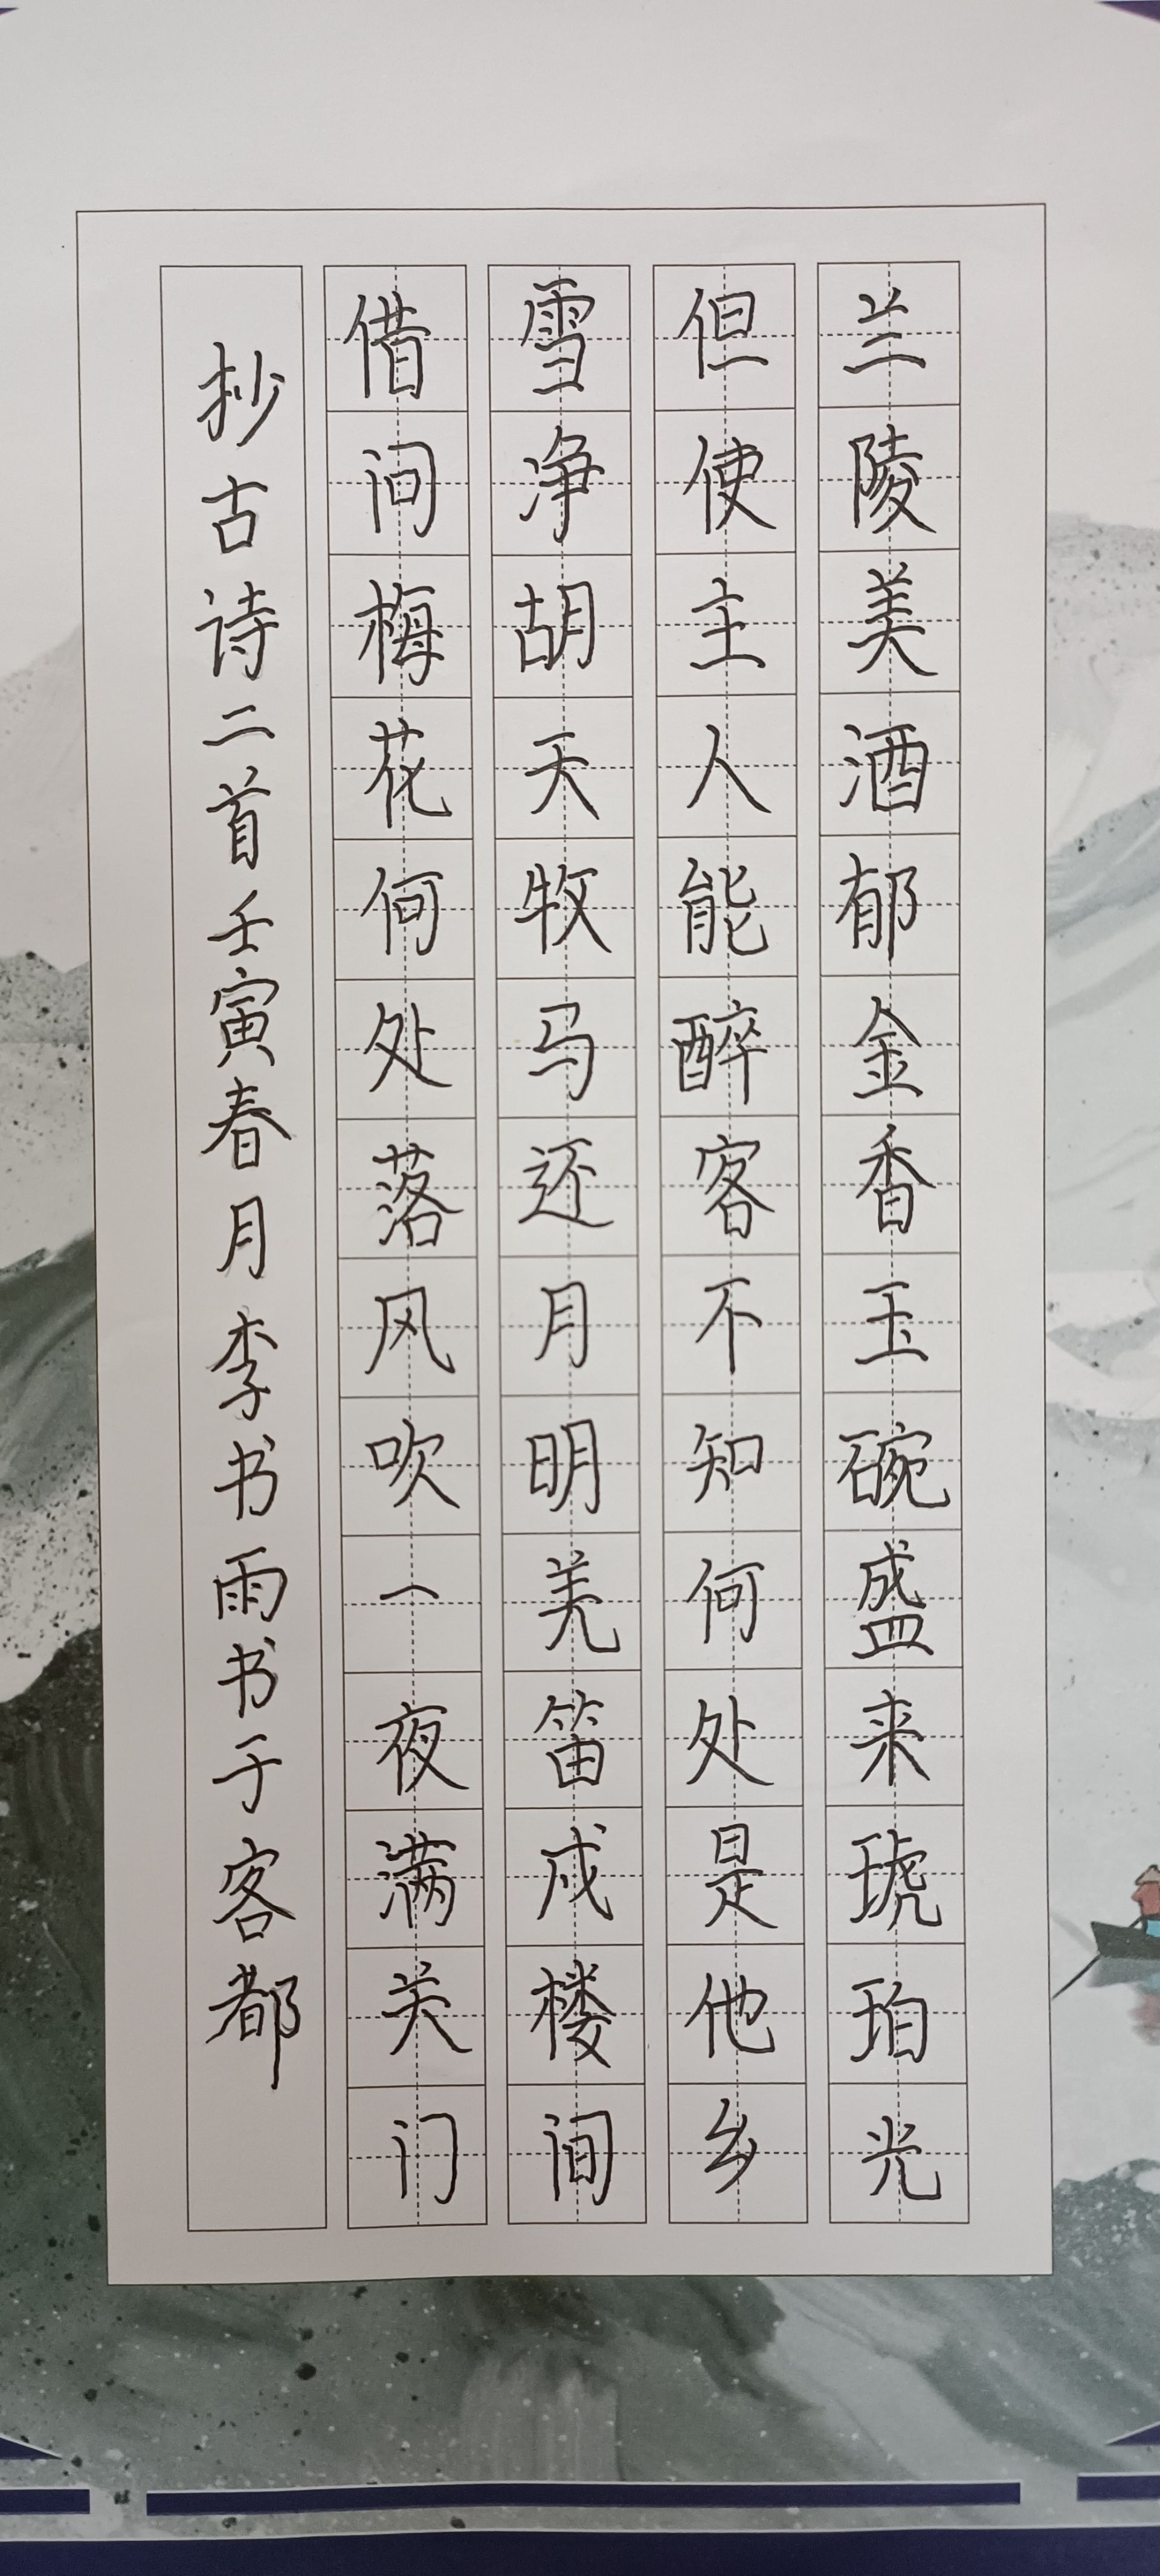 兰陵美酒郁金香玉碗盛来琥珀光
但使主人能醉客不知何处是他乡
雪净胡天牧马还月明羌笛戍楼间
借问梅花何处落风吹一夜满关门
抄古诗二首壬寅春月李书雨书于客都